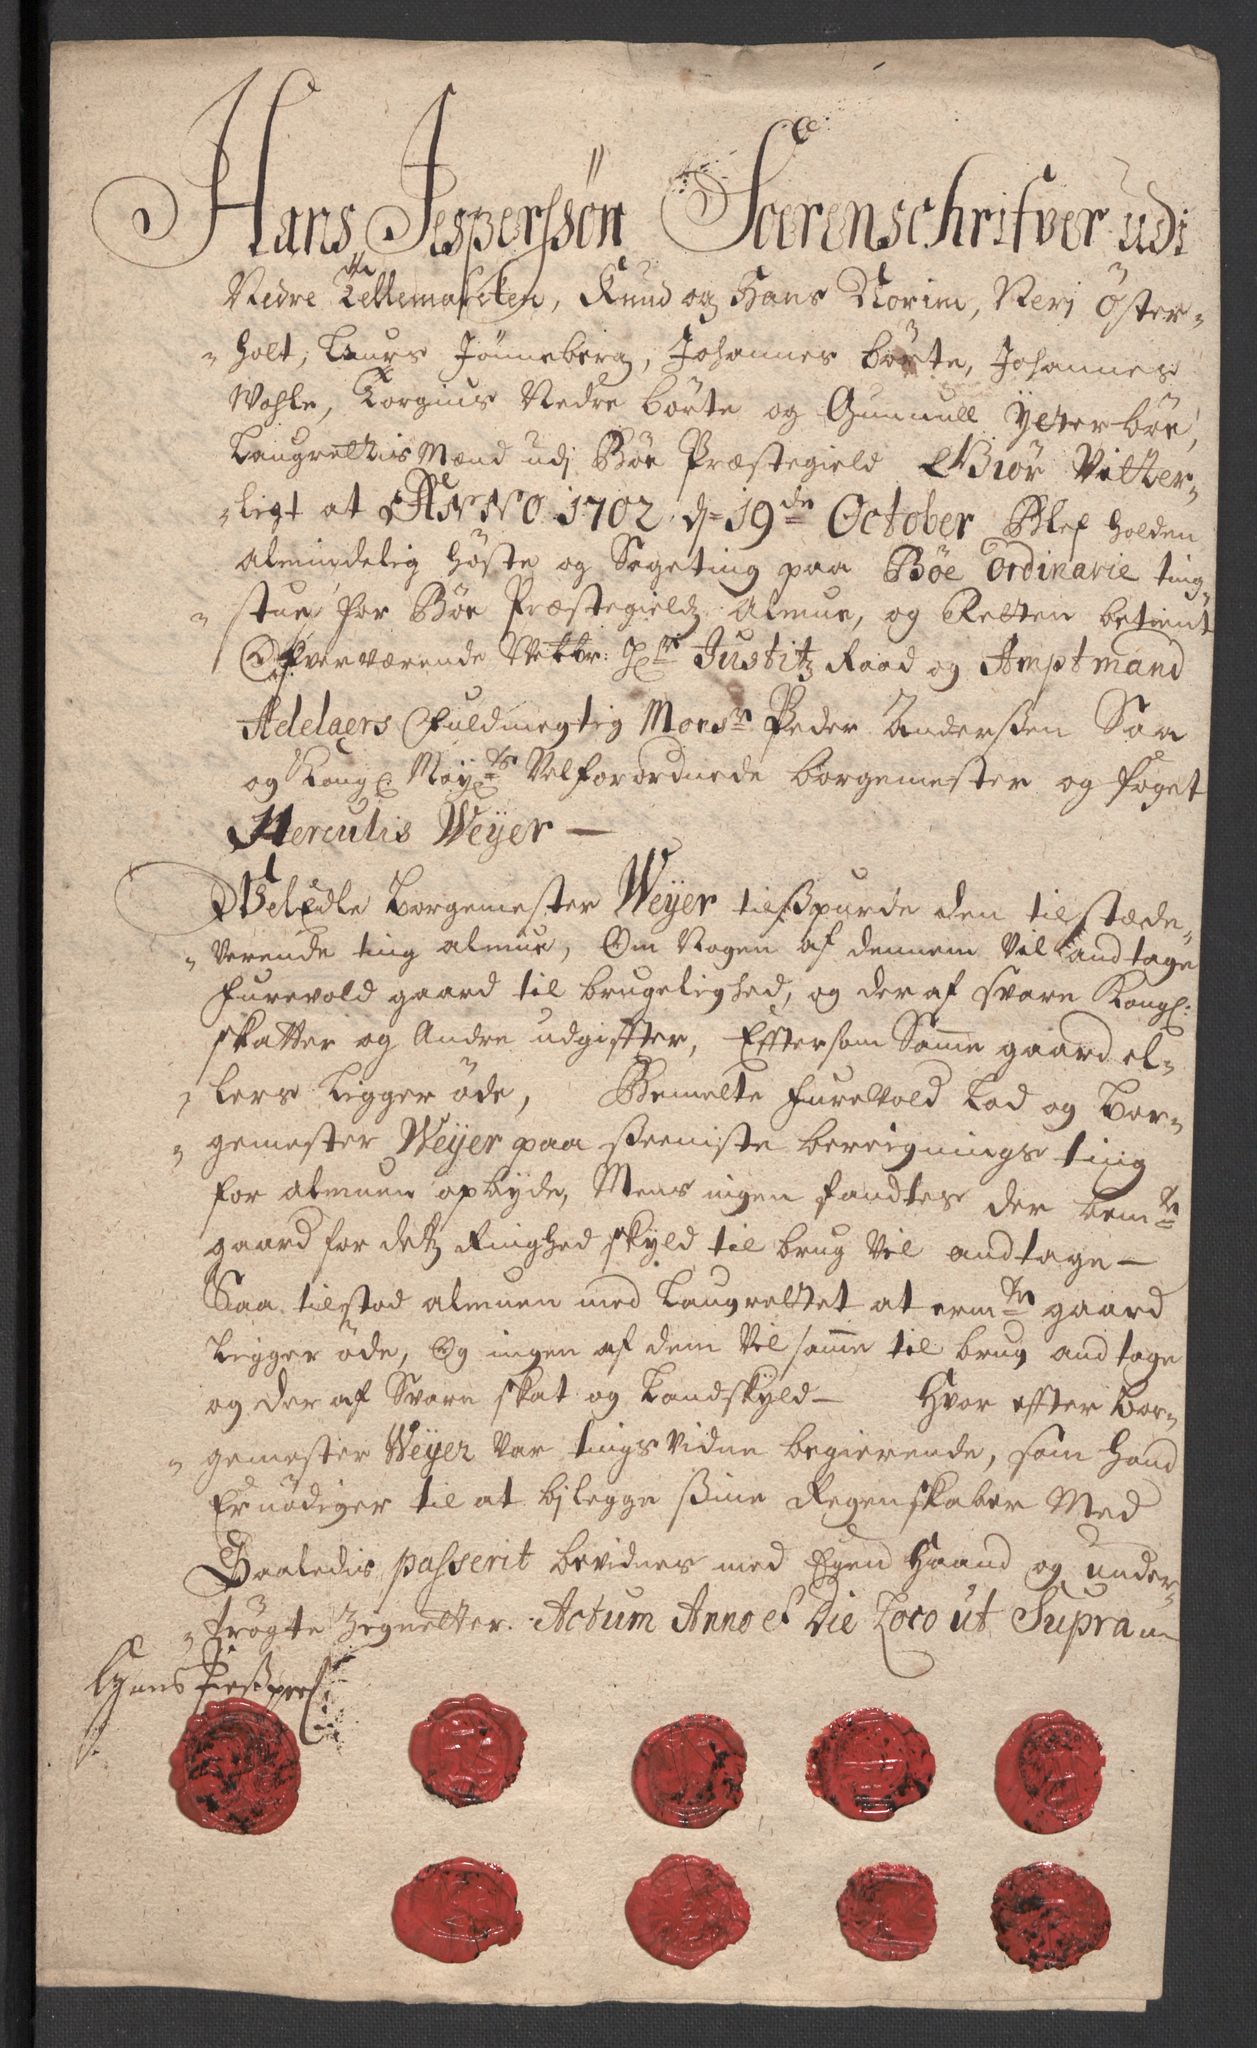 Hans Jesperssøn Soerenschrifver udi
Nedre Tellemarcken, Knud og Hans Norim, Neri Öster-
-holt, Laurs Jønneberg, Johannes Börte, Johannes
Wohle, Torgius Nedre Börte og Gunnull Ytterböe,
Laugrettis Mænd udj Böe Præstegield Giör Vitter-
-ligt at ANNO 1702 d= 19de October Blef holden
almindelig Höste og Sageting paa Böe Ordinarie ting-
-stue for Böe Præstegieldz Almue, og Retten betient
Ofverværende Velbr: Hr Justitz Raad og Amptmand
Adelaers Fuldmegtig Monsr Peder Anderßen Saa
og Kongl Mayts Velforordnede borgemester og foget
Herculis Weyer —
Vel Edle Borgemester Weyer tilßpurde den tilstæde-
-verende ting almue, Om Nogen af dennem Vil andtage
Furevold gaard til brugelighed, og der af svare Kongl:
skatter og Andre udgiffter, Efftersom Same gaard el-
-lers Ligger öde, Bemelte Furevold Lod og Bor-
-gemester Weyer paa ßeeniste bereignings ting
for almuen opbyde, Mens ingen fandtes der bemte
gaard for detz Ringhed skyld til brug Vil andtage —
Saa tilstod almuen med Laugrettet at ermte gaard
Ligger öde, Og ingen af dem Vil same til brug andtage
og der af Svare skat og Landskyld — Hvor effter Bor-
-gemester Weyer Var tings Vidne begierende, som hand
Er nödiger til at bjlegge ßine Regenskaber Med
Saaledis passerit bevidnes med Egen Haand og under-
-trögte Zignetter. Actum Anno et Die Loco ut Supra
Hans Jeßpers: